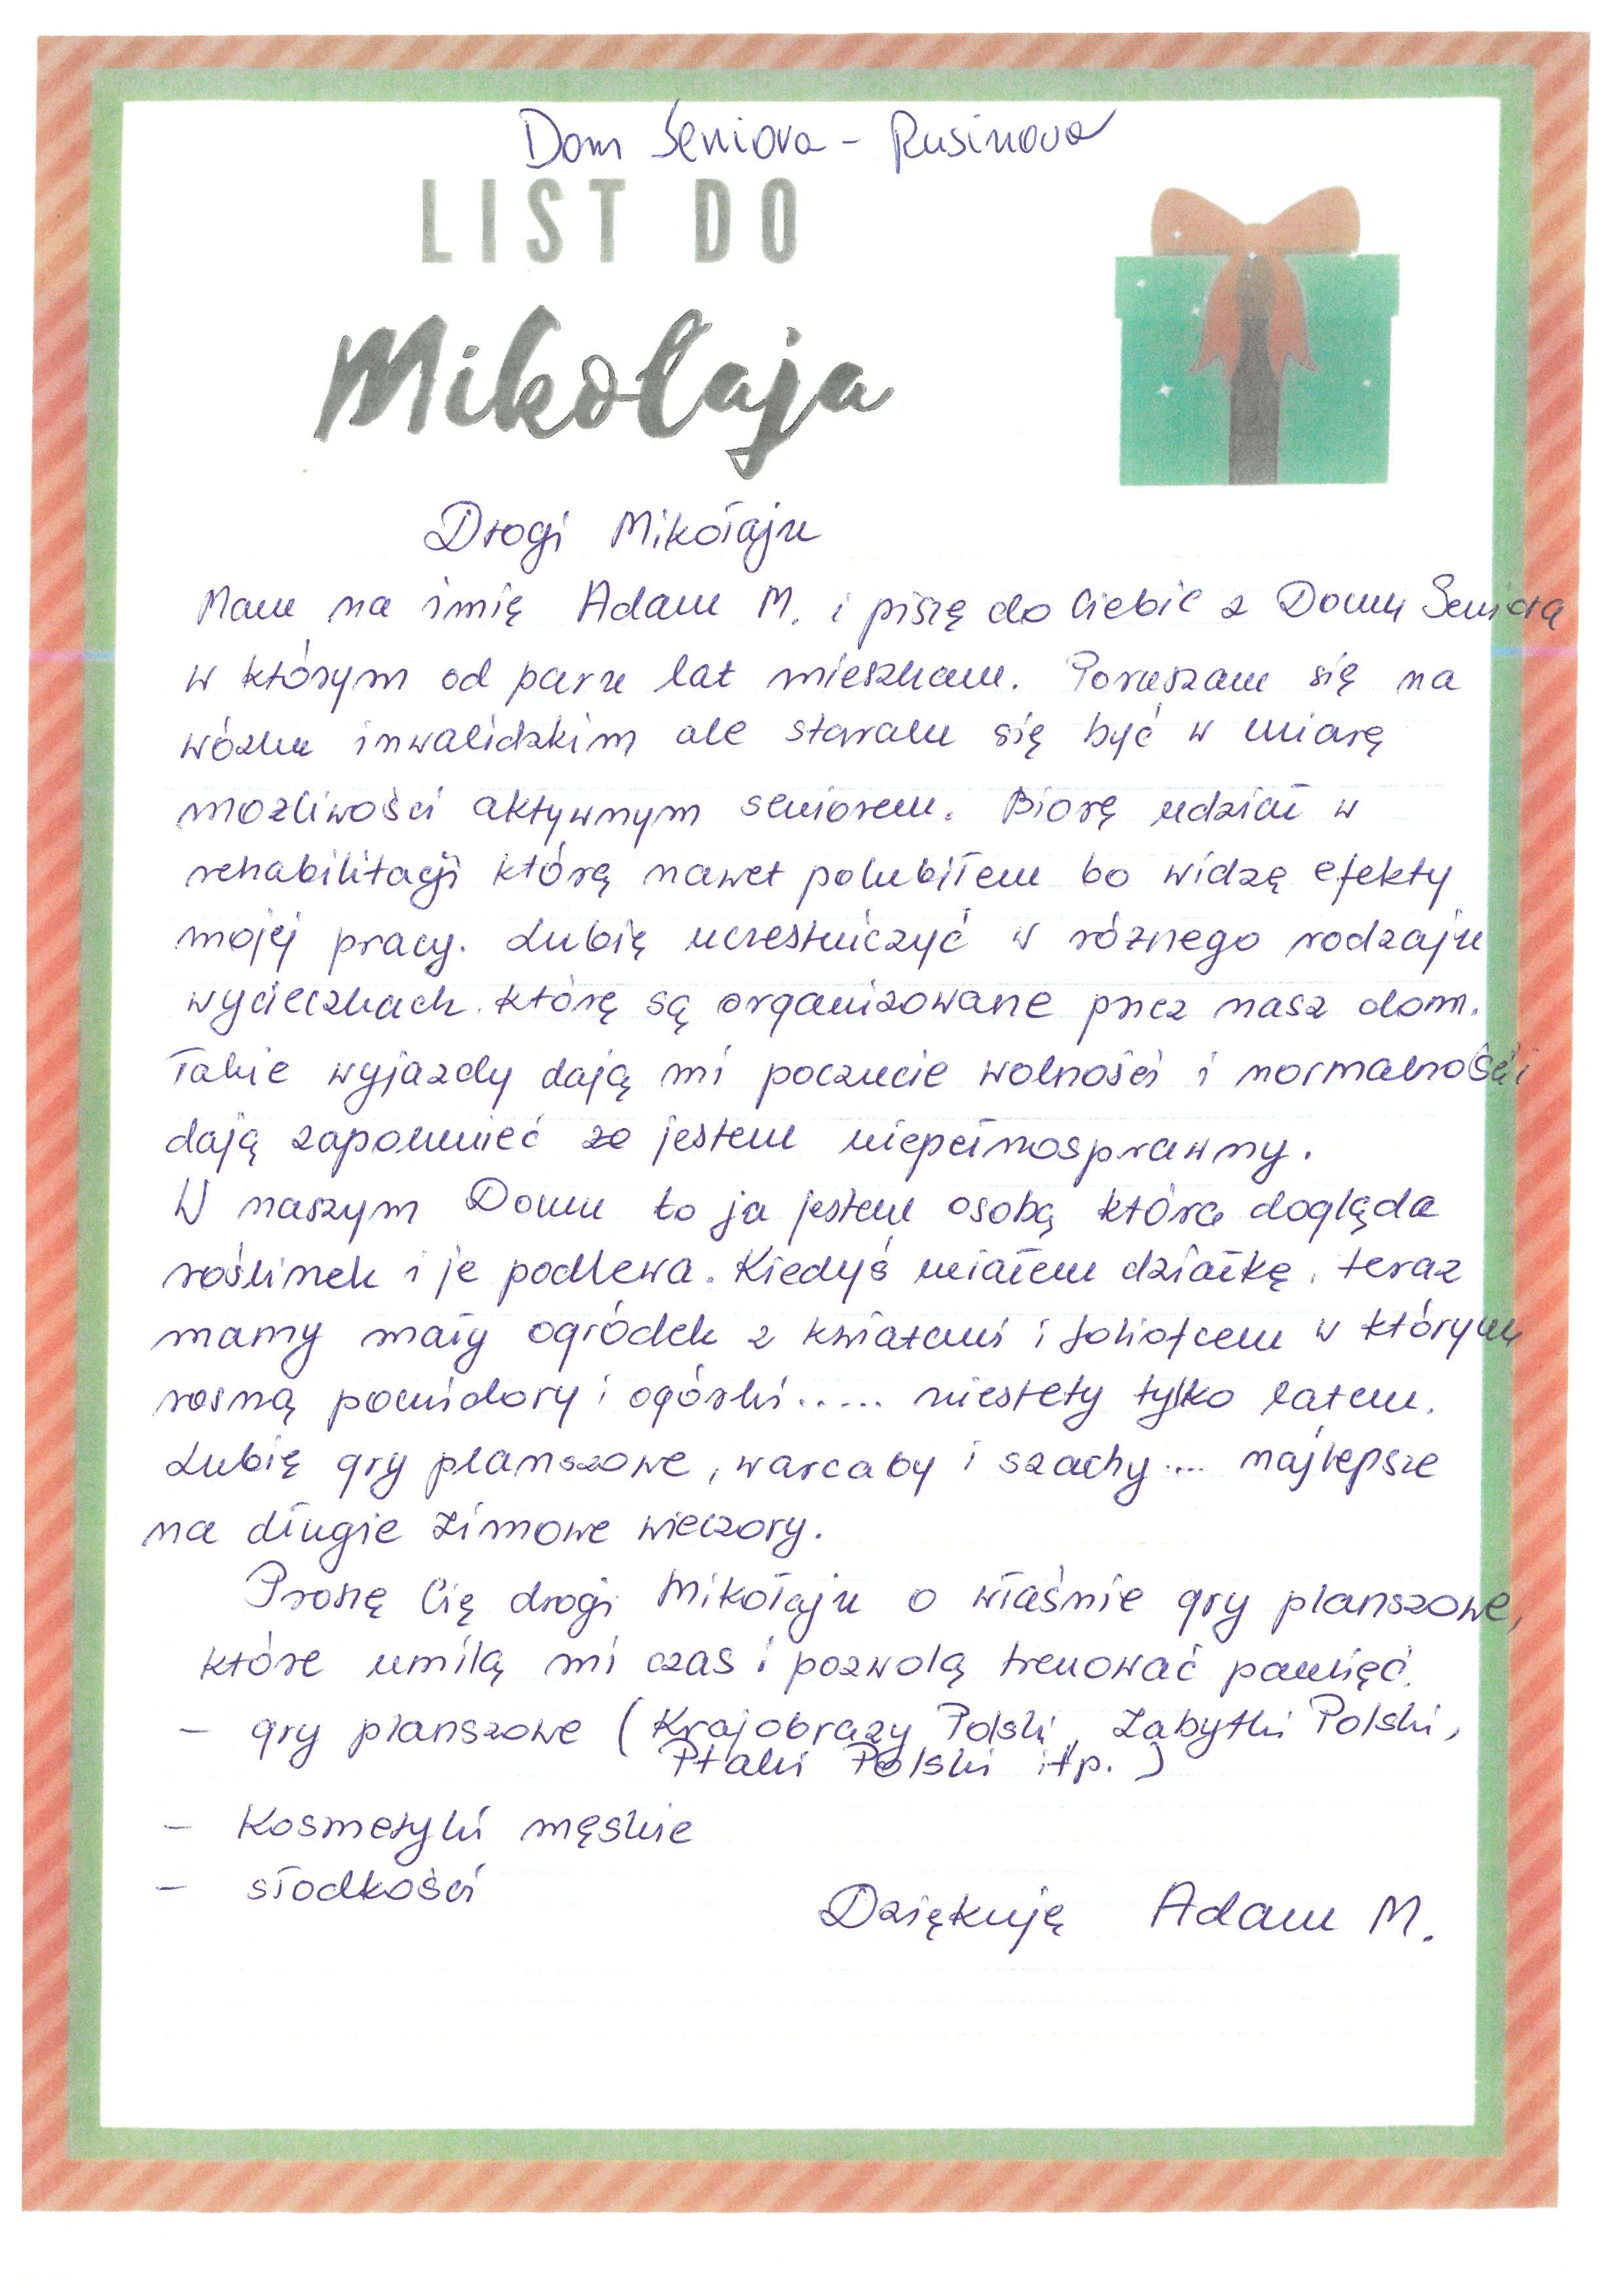 Dom Seniora - Rusinova
LIST DO
Mikołaja
Drogi Mikołaju
Mam na imię Adam M. i piszę do Ciebie z Domu Seniora
w którym od paru lat mieszkam. Poruszam się na
wózku inwalidzkim ale staram się być w miarę
możliwości aktywnym seniorem. Biorę udział w
rehabilitacji którą nawet polubiłem bo widzę efekty
mojej pracy. Lubię uczestniczyć w różnego rodzaju
wycieczkach które są organizowane przez nasz dom.
Takie wyjazdy dają mi poczucie wolności i normalności
dają zapomnieć że jestem niepełnosprawny.
W naszym Domu to ja jestem osobą która dogląda
roślinek i je podlewa. Kiedyś miałem działkę, teraz
mamy mały ogródek z kwiatami i foliofcem w którym
rosną pomidory i ogórki..... niestety tylko latem.
Lubię gry planszowe, warcaby i szachy.... najlepsze
na długie zimowe wieczory.
Proszę Cię drogi Mikołaju o właśnie gry planszowe,
które umilą mi czas i pozwolą trenować pamięć.
- gry planszowe (Krajobrazy Polski, Zabytki Polski,
Ptaki Polski itp.)
- Kosmetyki męskie
- słodkości
Dziękuję Adam M.